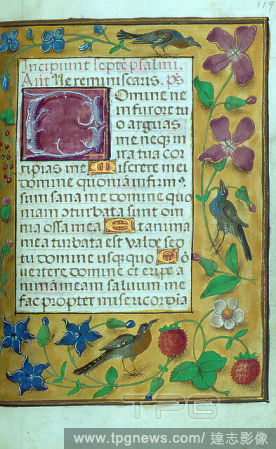 119
Incipiunt septe psalmi.
Ant Ne reminiscaris. ps
Domine ne
in furore tuo
arguas
me neq in
ira tua cor
ripias me Miserere mei
domine quoniā infirm
sum sana me domine quo
niam cturbata sunt om
nia ossa mea Et anima
mea turbata est valde sed
tu domine usq quo Co
vertere domine et eripe a
nimā meam saluum me
fac propter misericordia
TPG
www.tpgnews.com/ 達志影像